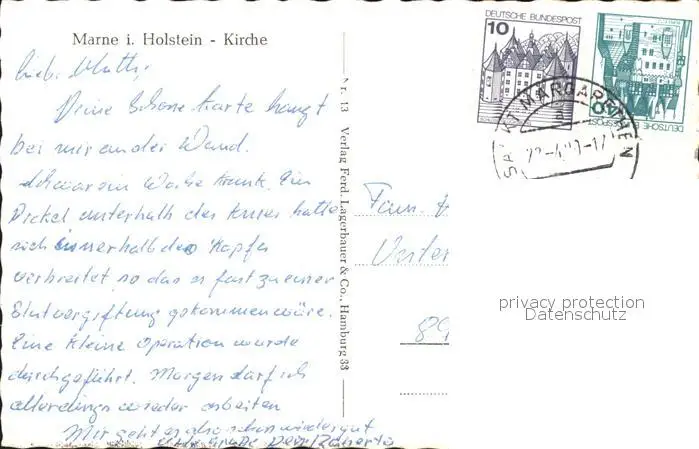 Marne i. Holstein - Kirche
Lieb. Mutti,
Deine schöne Karte hängt
bei mir an der Wand.
Ich war ein Woche krank. Ein
Pickel unterhalb des Knies hatte
sich innerhalb des Kopfes
verbreitet so das es fast zu einer
Blutvergiftung gekommen wäre.
Eine kleine Operation wurde
durchgeführt. Morgen darf ich
allerdings wieder arbeiten
Mir geht es also schon wieder gut
Viele Grüße Dein
Nr. 13 Verlag Ferd. Lagerbauer & Co., Hamburg 33
DEUTSCHE BUNDESPOST
10
DEUTSCHE BUNDESPOST
40
SANKT MARGARETHEN
Fam. H
Unter
89
privacy protection
Datenschutz